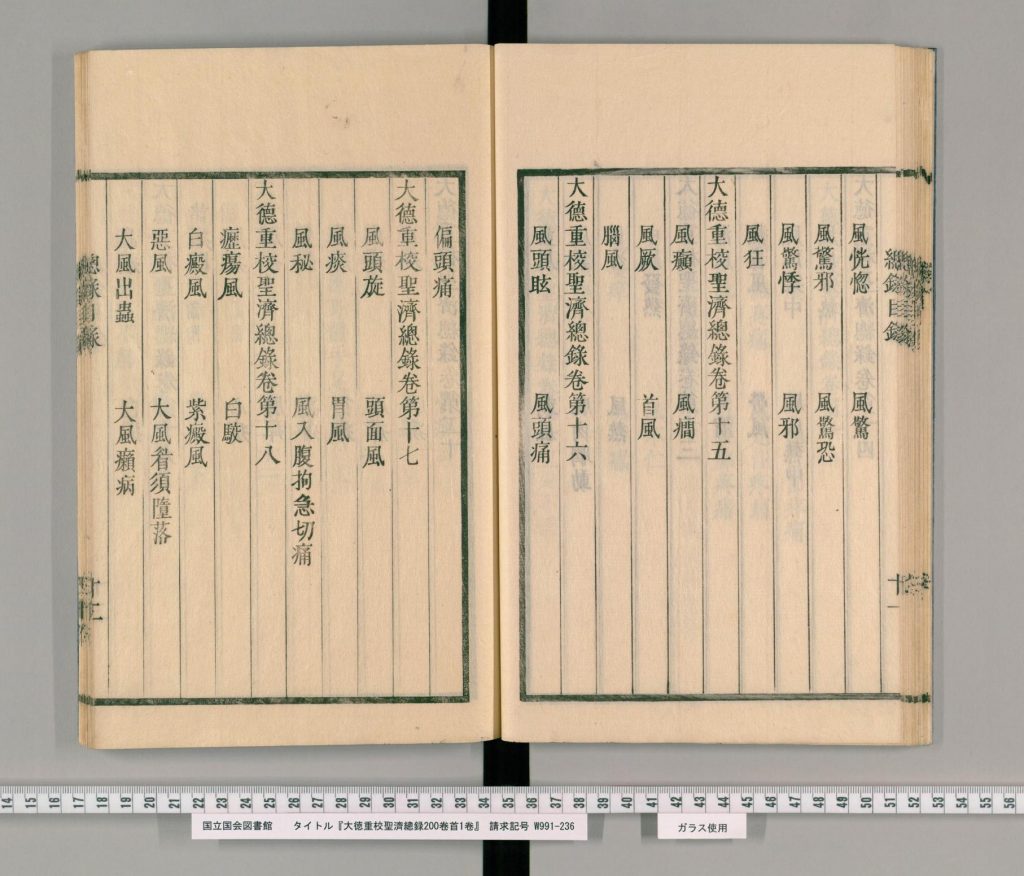 總錄目錄
十一
風恍惚 風驚
風驚邪 風驚恐
風驚悸 風邪
風狂
大德重校聖濟總錄卷第十五
風癲 風癎
風厥 首風
腦風
大德重校聖濟總錄卷第十六
風頭眩 風頭痛
偏頭痛
大德重校聖濟總錄卷第十七
風頭旋 頭面風
風痰 胃風
風秘 風入腹拘急切痛
大德重校聖濟總錄卷第十八
癧瘍風 白駮
白癜風 紫癜風
惡風 大風眉須墮落
大風出蟲 大風癩病
總錄目錄
十二
14 15 16 17 18 19 20 21 22 23 24 25 26 27 28 29 30 31 32 33 34 35 36 37 38 39 40 41 42 43 44 45 46 47 48 49 50 51 52 53 54 55 56
国立国会図書館 タイトル『大徳重校聖濟總録200卷首1卷』 請求記号 W991-236
ガラス使用